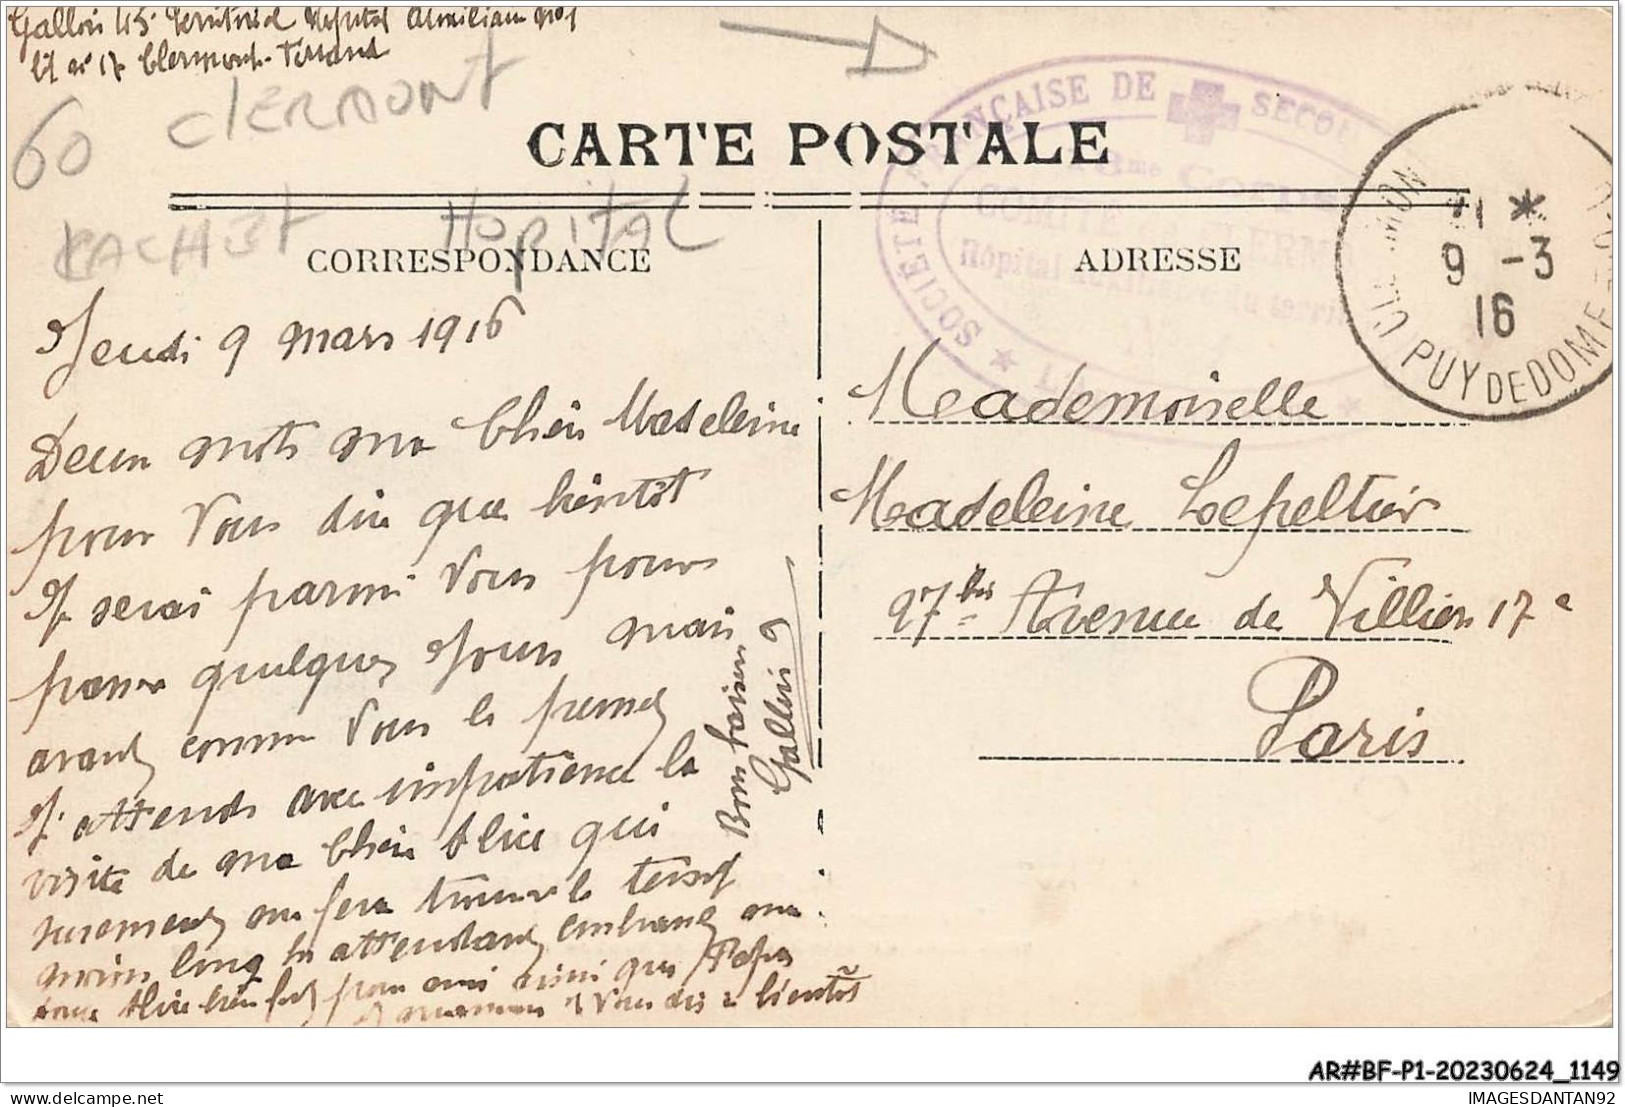 Gallois 45e Territorial Hopital Auxiliaire No 1
lit no 17 Clermont-Ferrand
60 CLERMONT
CACHET HOPITAL
CARTE POSTALE
CORRESPONDANCE
ADRESSE
SOCIETE FRANÇAISE DE SECOU
COMITE DE CLERMO
Hôpital Auxiliaire du territ
9 -3
16
PUY DE DOME
Jeudi 9 mars 1916
Deux mots ma Chère Madeleine
pour Vous dire que bientôt
Je serai parmi Vous pour
passer quelques Jours mais
avant comme Vous le pensez
J'attends avec impatience la
visite de ma Chère Alice qui
surement me fera trouver le temps
moins long en attendant embrassez ma
Alice bien fort pour moi ainsi que Papa
maman Vous dis à bientôt
Bons baisers
Gallois
Mademoiselle
Madeleine Lepeltier
97 bis Avenue de Villiers 17e
Paris
AR#BF-P1-20230624_1149
IMAGESDANTAN92